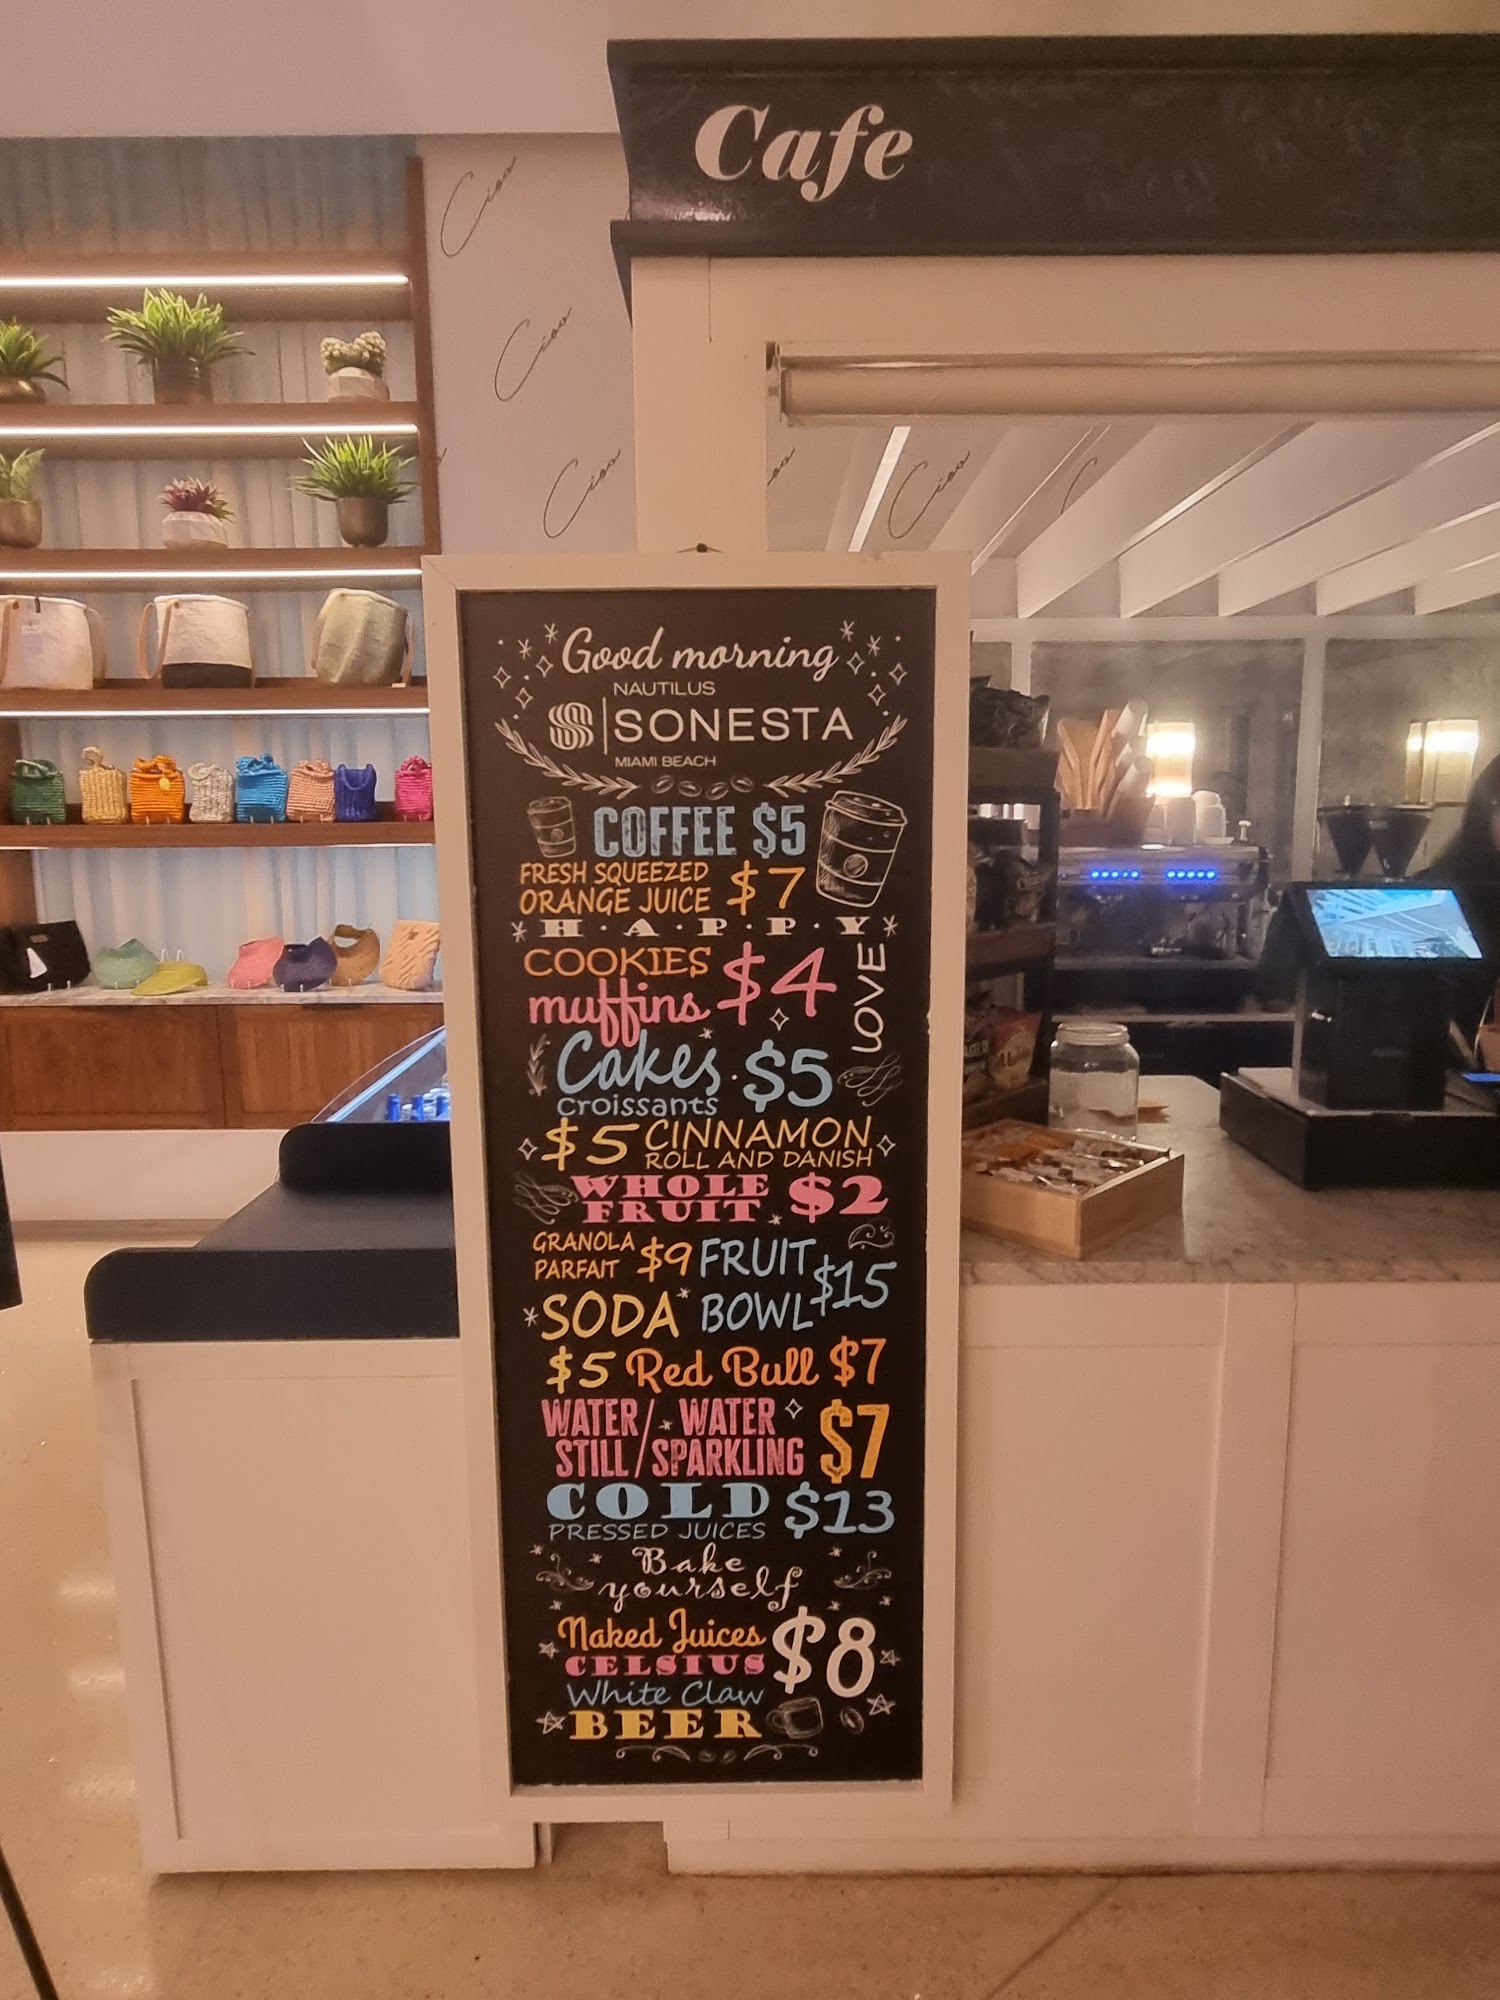 Cafe
Ciao
Ciao
Ciao
Ciao
Good morning
NAUTILUS
SONESTA
MIAMI BEACH
COFFEE $5
FRESH SQUEEZED
ORANGE JUICE $7
H·A·P·P·Y
COOKIES
muffins $4
LOVE
Cakes
croissants $5
$5 CINNAMON
ROLL AND DANISH
WHOLE
FRUIT $2
GRANOLA
PARFAIT $9
FRUIT
BOWL $15
SODA
$5 Red Bull $7
WATER/ WATER
STILL/SPARKLING $7
COLD
PRESSED JUICES $13
Bake
yourself
Naked Juices
CELSIUS $8
White Claw
BEER